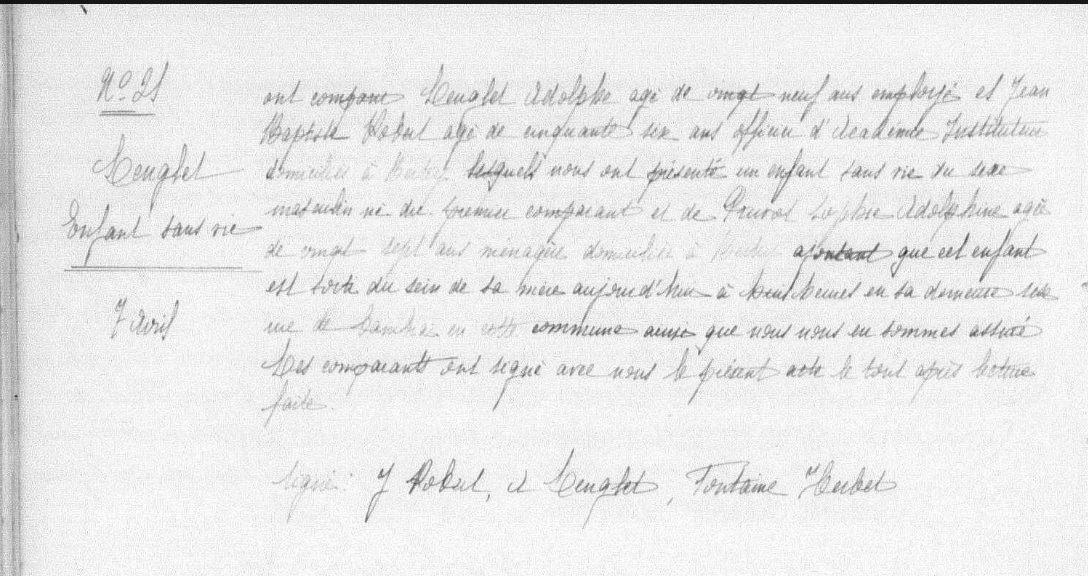 No 21
Lenglet
Enfant sans vie
7 Avril
ont comparu Lenglet Adolphe agé de vingt neuf ans employé et Jean
Baptiste Robert agé de cinquante six ans officier d'Academie Instituteur
domiciliés à lesquels nous ont présenté un enfant sans vie du sexe
masculin né du premier comparant et de Pruvot Sophie Adolphine agée
de vingt sept ans ménagère domiciliée à ajoutant que cet enfant
est sorti du sein de sa mère aujourd'hui à heures en sa demeure sise
rue de Cambrai en cette commune ainsi que nous nous en sommes assuré
Les comparants ont signé avec nous le présent acte le tout après lecture
faite.
Signé: J Robert, A Lenglet, Fontaine Herbet